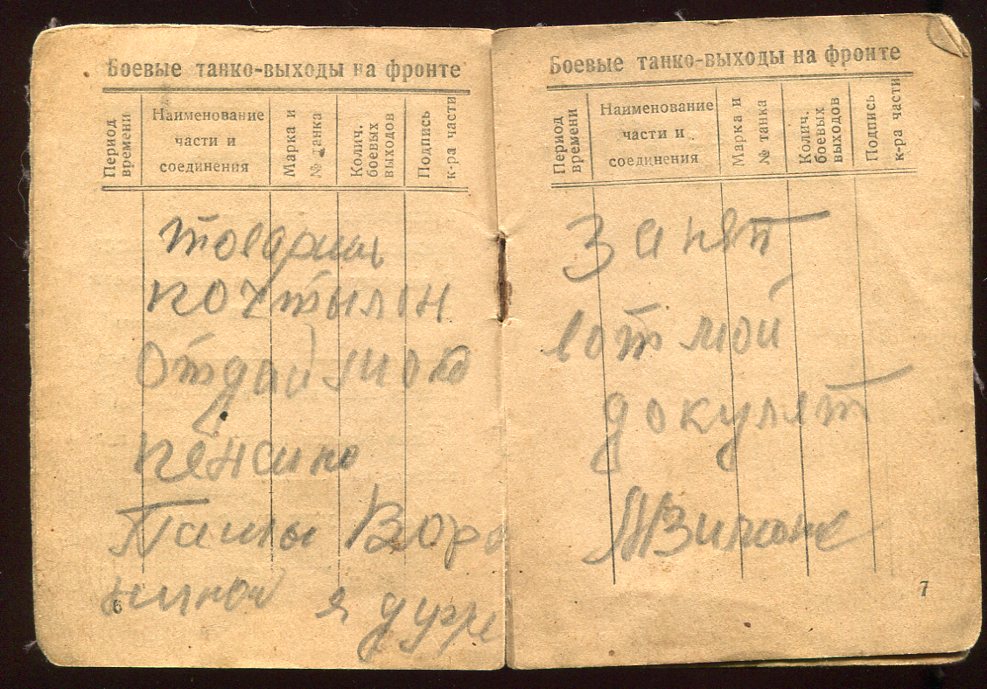 Боевые танко-выходы на фронте
Период времени
Наименование части и соединения
Марка и № танка
Колич. боевых выходов
Подпись к-ра части
товариш
почтылон
отдай мою
пенсию
Паши Воро
ниной я дуже
6
Боевые танко-выходы на фронте
Период времени
Наименование части и соединения
Марка и № танка
Колич. боевых выходов
Подпись к-ра части
Занят
вот мой
докумят
7